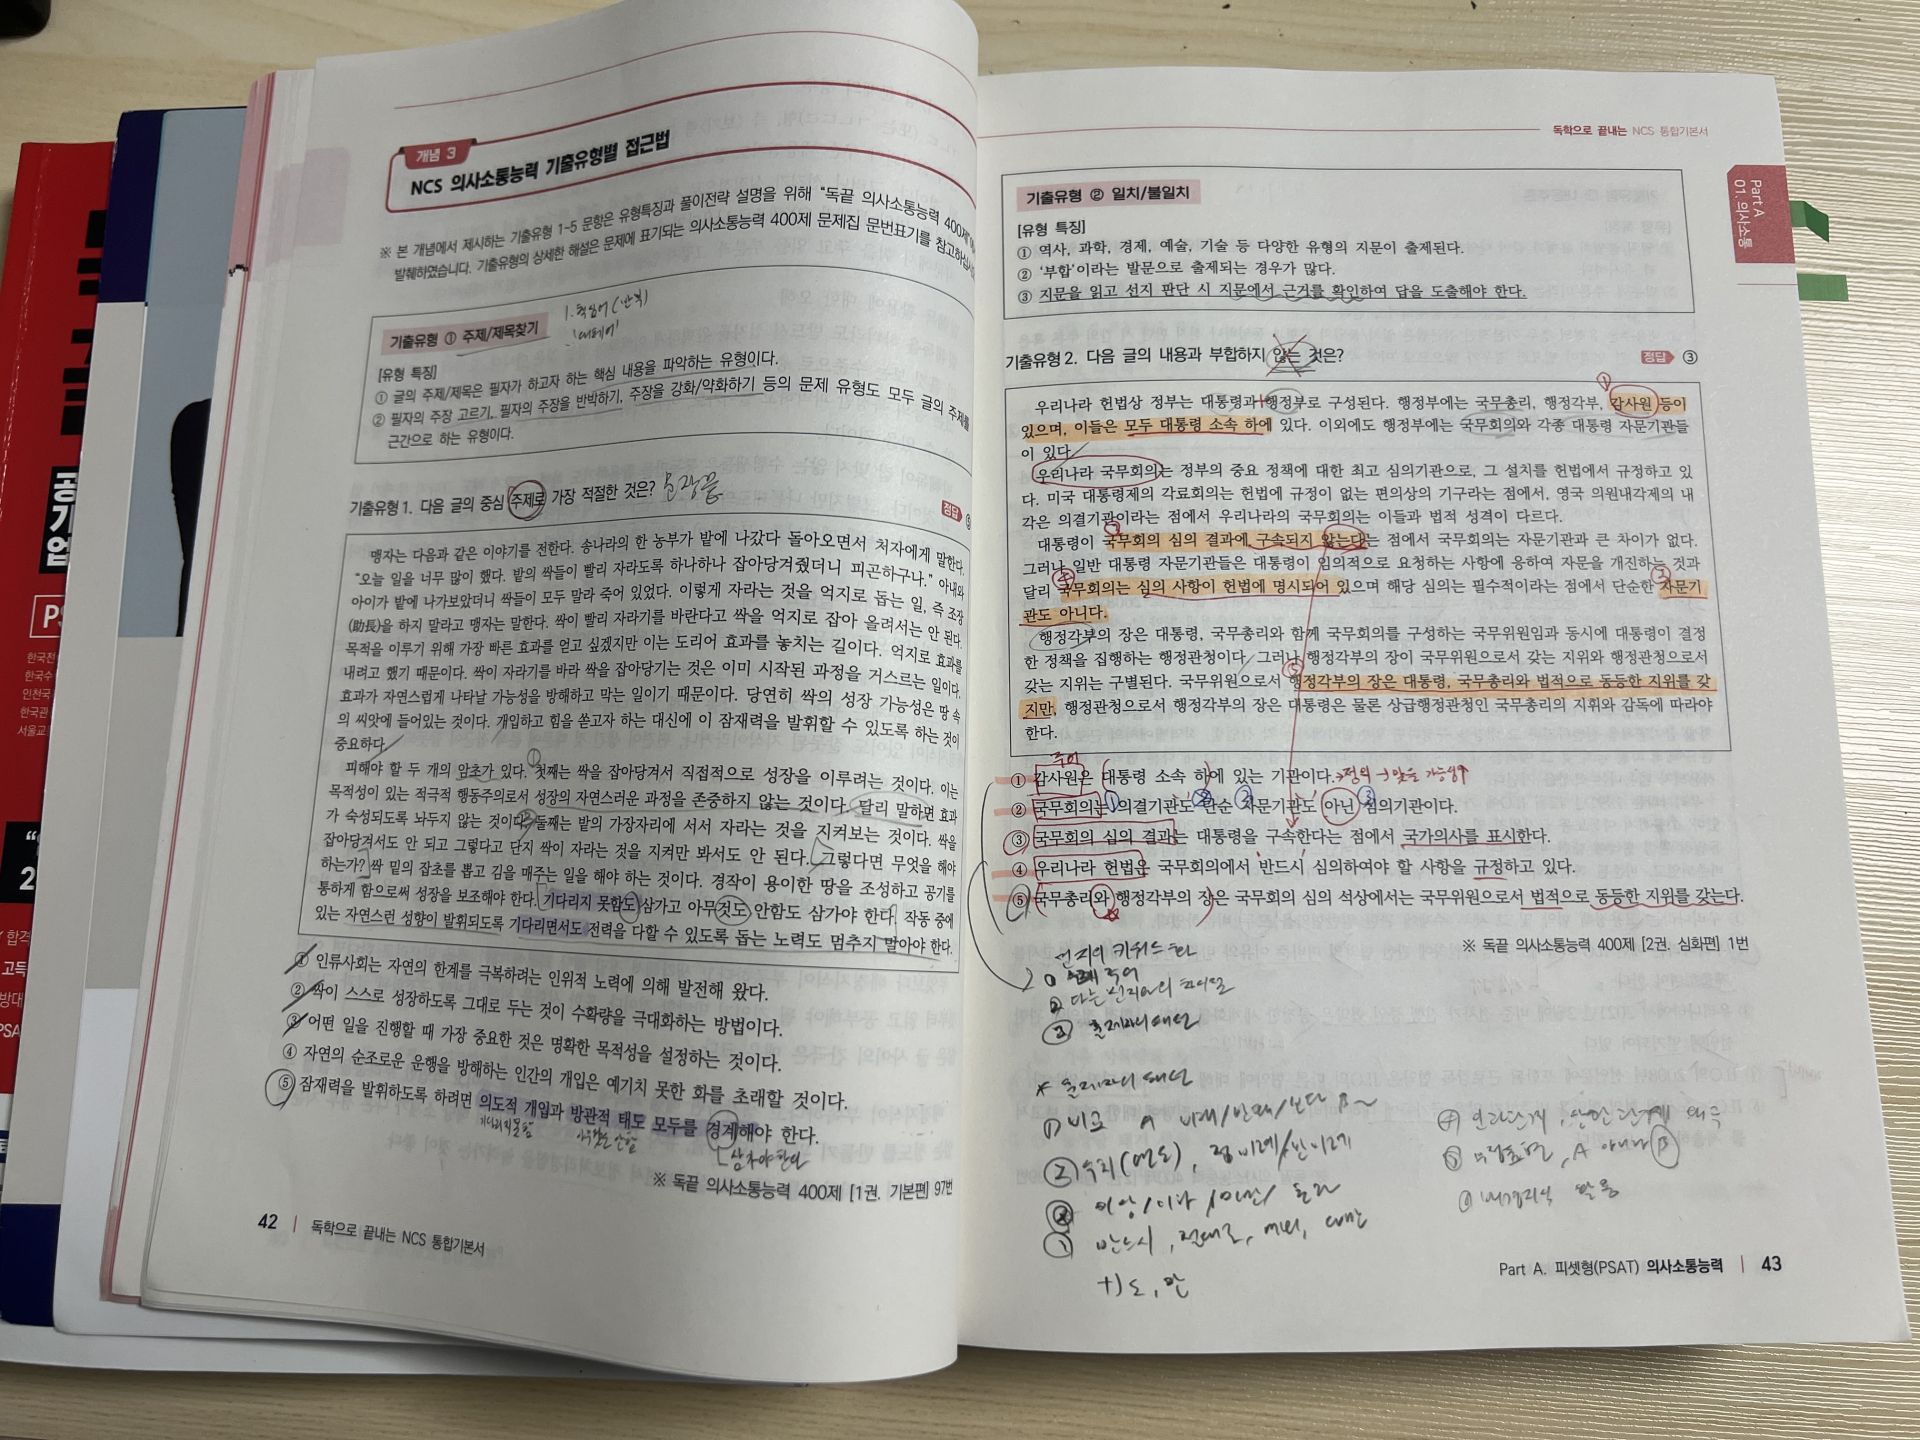 개념 3
NCS 의사소통능력 기출유형별 접근법
※ 본 개념에서 제시하는 기출유형 1~5 문항은 유형특징과 풀이전략 설명을 위해 "독끝 의사소통능력 400제"에
발췌하였습니다. 기출유형의 상세한 해설은 문제에 표기되는 의사소통능력 400제 문제집 문번표기를 참고하십시
기출유형 ① 주제/제목찾기
[유형 특징]
① 글의 주제/제목은 필자가 하고자 하는 핵심 내용을 파악하는 유형이다.
② 필자의 주장 고르기, 필자의 주장을 반박하기, 주장을 강화/약화하기 등의 문제 유형도 모두 글의 주제를
근간으로 하는 유형이다.
기출유형 1. 다음 글의 중심 주제로 가장 적절한 것은?
정답 ⑤
맹자는 다음과 같은 이야기를 전한다. 송나라의 한 농부가 밭에 나갔다 돌아오면서 처자에게 말한다.
"오늘 일을 너무 많이 했다. 밭의 싹들이 빨리 자라도록 하나하나 잡아당겨줬더니 피곤하구나." 아내와
아이가 밭에 나가보았더니 싹들이 모두 말라 죽어 있었다. 이렇게 자라는 것을 억지로 돕는 일, 즉 조장
(助長)을 하지 말라고 맹자는 말한다. 싹이 빨리 자라기를 바란다고 싹을 억지로 잡아 올려서는 안 된다.
목적을 이루기 위해 가장 빠른 효과를 얻고 싶겠지만 이는 도리어 효과를 놓치는 길이다. 억지로 효과를
내려고 했기 때문이다. 싹이 자라기를 바라 싹을 잡아당기는 것은 이미 시작된 과정을 거스르는 일이다.
효과가 자연스럽게 나타날 가능성을 방해하고 막는 일이기 때문이다. 당연히 싹의 성장 가능성은 땅 속
의 씨앗에 들어있는 것이다. 개입하고 힘을 쏟고자 하는 대신에 이 잠재력을 발휘할 수 있도록 하는 것이
중요하다.
피해야 할 두 개의 암초가 있다. 첫째는 싹을 잡아당겨서 직접적으로 성장을 이루려는 것이다. 이는
목적성이 있는 적극적 행동주의로서 성장의 자연스러운 과정을 존중하지 않는 것이다. 달리 말하면 효과
가 숙성되도록 놔두지 않는 것이다. 둘째는 밭의 가장자리에 서서 자라는 것을 지켜보는 것이다. 싹을
잡아당겨서도 안 되고 그렇다고 단지 싹이 자라는 것을 지켜만 봐서도 안 된다. 그렇다면 무엇을 해야
하는가? 싹 밑의 잡초를 뽑고 김을 매주는 일을 해야 하는 것이다. 경작이 용이한 땅을 조성하고 공기를
통하게 함으로써 성장을 보조해야 한다. 기다리지 못함도 삼가고 아무것도 안함도 삼가야 한다. 작동 중에
있는 자연스런 성향이 발휘되도록 기다리면서도 전력을 다할 수 있도록 돕는 노력도 멈추지 말아야 한다.
① 인류사회는 자연의 한계를 극복하려는 인위적 노력에 의해 발전해 왔다.
② 싹이 스스로 성장하도록 그대로 두는 것이 수확량을 극대화하는 방법이다.
③ 어떤 일을 진행할 때 가장 중요한 것은 명확한 목적성을 설정하는 것이다.
④ 자연의 순조로운 운행을 방해하는 인간의 개입은 예기치 못한 화를 초래할 것이다.
⑤ 잠재력을 발휘하도록 하려면 의도적 개입과 방관적 태도 모두를 경계해야 한다.
삼가야 한다
※ 독끝 의사소통능력 400제 [1권. 기본편] 97번
42 | 독학으로 끝내는 NCS 통합기본서
독학으로 끝내는 NCS 통합기본서
Part A
01. 의사소통
기출유형 ② 일치/불일치
[유형 특징]
① 역사, 과학, 경제, 예술, 기술 등 다양한 유형의 지문이 출제된다.
② '부합'이라는 발문으로 출제되는 경우가 많다.
③ 지문을 읽고 선지 판단 시 지문에서 근거를 확인하여 답을 도출해야 한다.
기출유형 2. 다음 글의 내용과 부합하지 않는 것은?
정답 ③
우리나라 헌법상 정부는 대통령과 행정부로 구성된다. 행정부에는 국무총리, 행정각부, 감사원 등이
있으며, 이들은 모두 대통령 소속 하에 있다. 이외에도 행정부에는 국무회의와 각종 대통령 자문기관들
이 있다.
우리나라 국무회의는 정부의 중요 정책에 대한 최고 심의기관으로, 그 설치를 헌법에서 규정하고 있
다. 미국 대통령제의 각료회의는 헌법에 규정이 없는 편의상의 기구라는 점에서, 영국 의원내각제의 내
각은 의결기관이라는 점에서 우리나라의 국무회의는 이들과 법적 성격이 다르다.
대통령이 국무회의 심의 결과에 구속되지 않는다는 점에서 국무회의는 자문기관과 큰 차이가 없다.
그러나 일반 대통령 자문기관들은 대통령이 임의적으로 요청하는 사항에 응하여 자문을 개진하는 것과
달리 국무회의는 심의 사항이 헌법에 명시되어 있으며 해당 심의는 필수적이라는 점에서 단순한 자문기
관도 아니다.
행정각부의 장은 대통령, 국무총리와 함께 국무회의를 구성하는 국무위원임과 동시에 대통령이 결정
한 정책을 집행하는 행정관청이다. 그러나 행정각부의 장이 국무위원으로서 갖는 지위와 행정관청으로서
갖는 지위는 구별된다. 국무위원으로서 행정각부의 장은 대통령, 국무총리와 법적으로 동등한 지위를 갖
지만, 행정관청으로서 행정각부의 장은 대통령은 물론 상급행정관청인 국무총리의 지휘와 감독에 따라야
한다.
주어
① 감사원은 대통령 소속 하에 있는 기관이다.
② 국무회의는 의결기관도 단순 자문기관도 아닌 심의기관이다.
③ 국무회의 심의 결과는 대통령을 구속한다는 점에서 국가의사를 표시한다.
④ 우리나라 헌법은 국무회의에서 반드시 심의하여야 할 사항을 규정하고 있다.
⑤ 국무총리와 행정각부의 장은 국무회의 심의 석상에서는 국무위원으로서 법적으로 동등한 지위를 갖는다.
※ 독끝 의사소통능력 400제 [2권. 심화편] 1번
Part A. 피셋형(PSAT) 의사소통능력 | 43